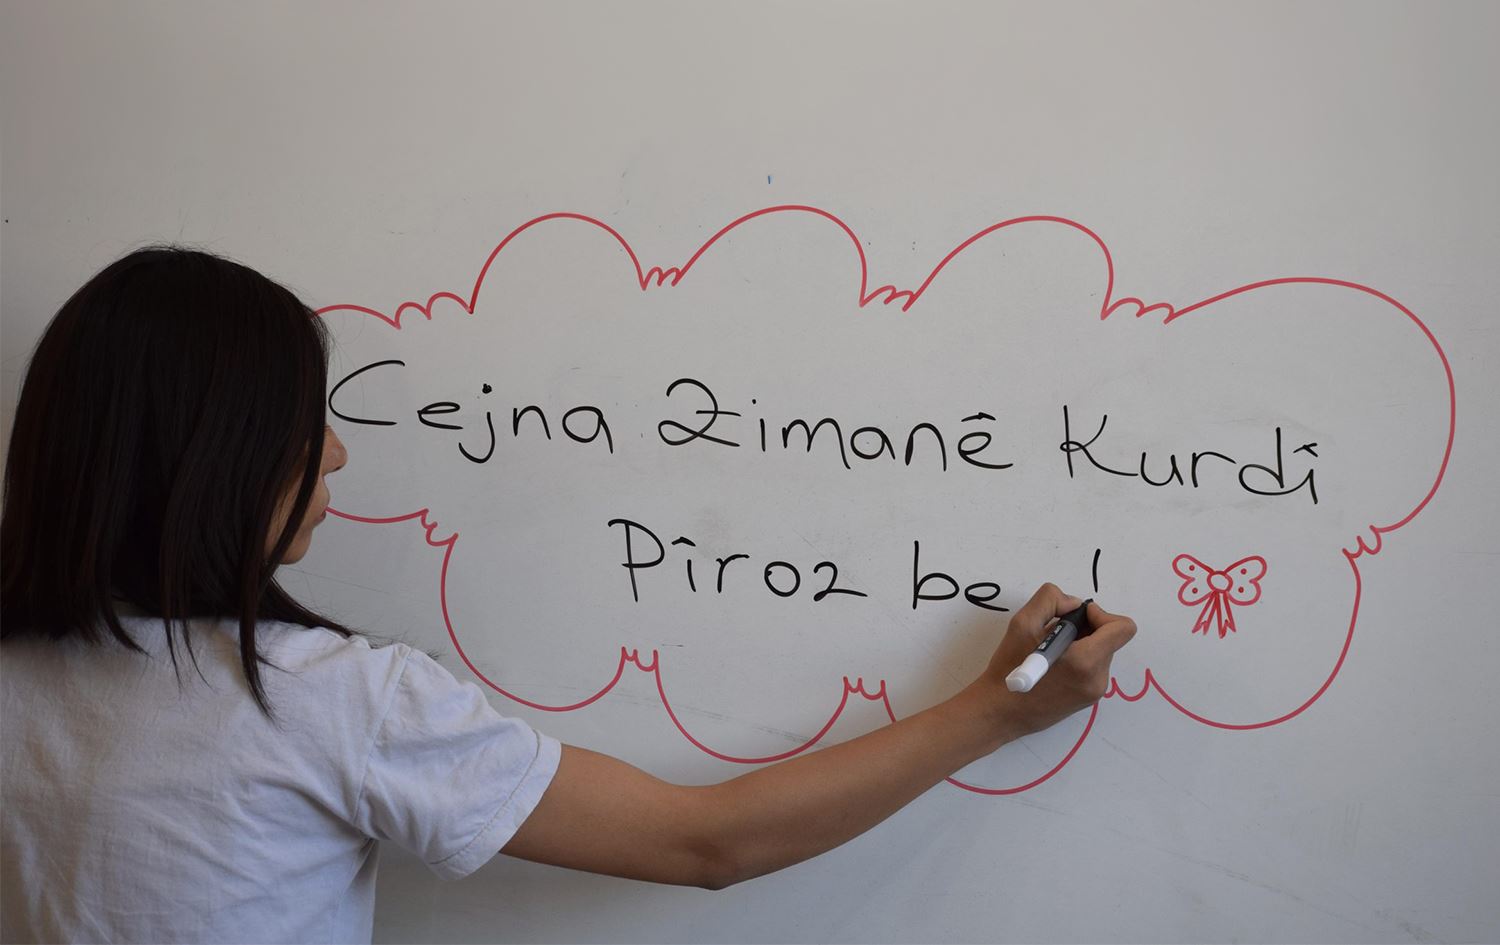 Cejna Zimanê Kurdî
Pîroz be !